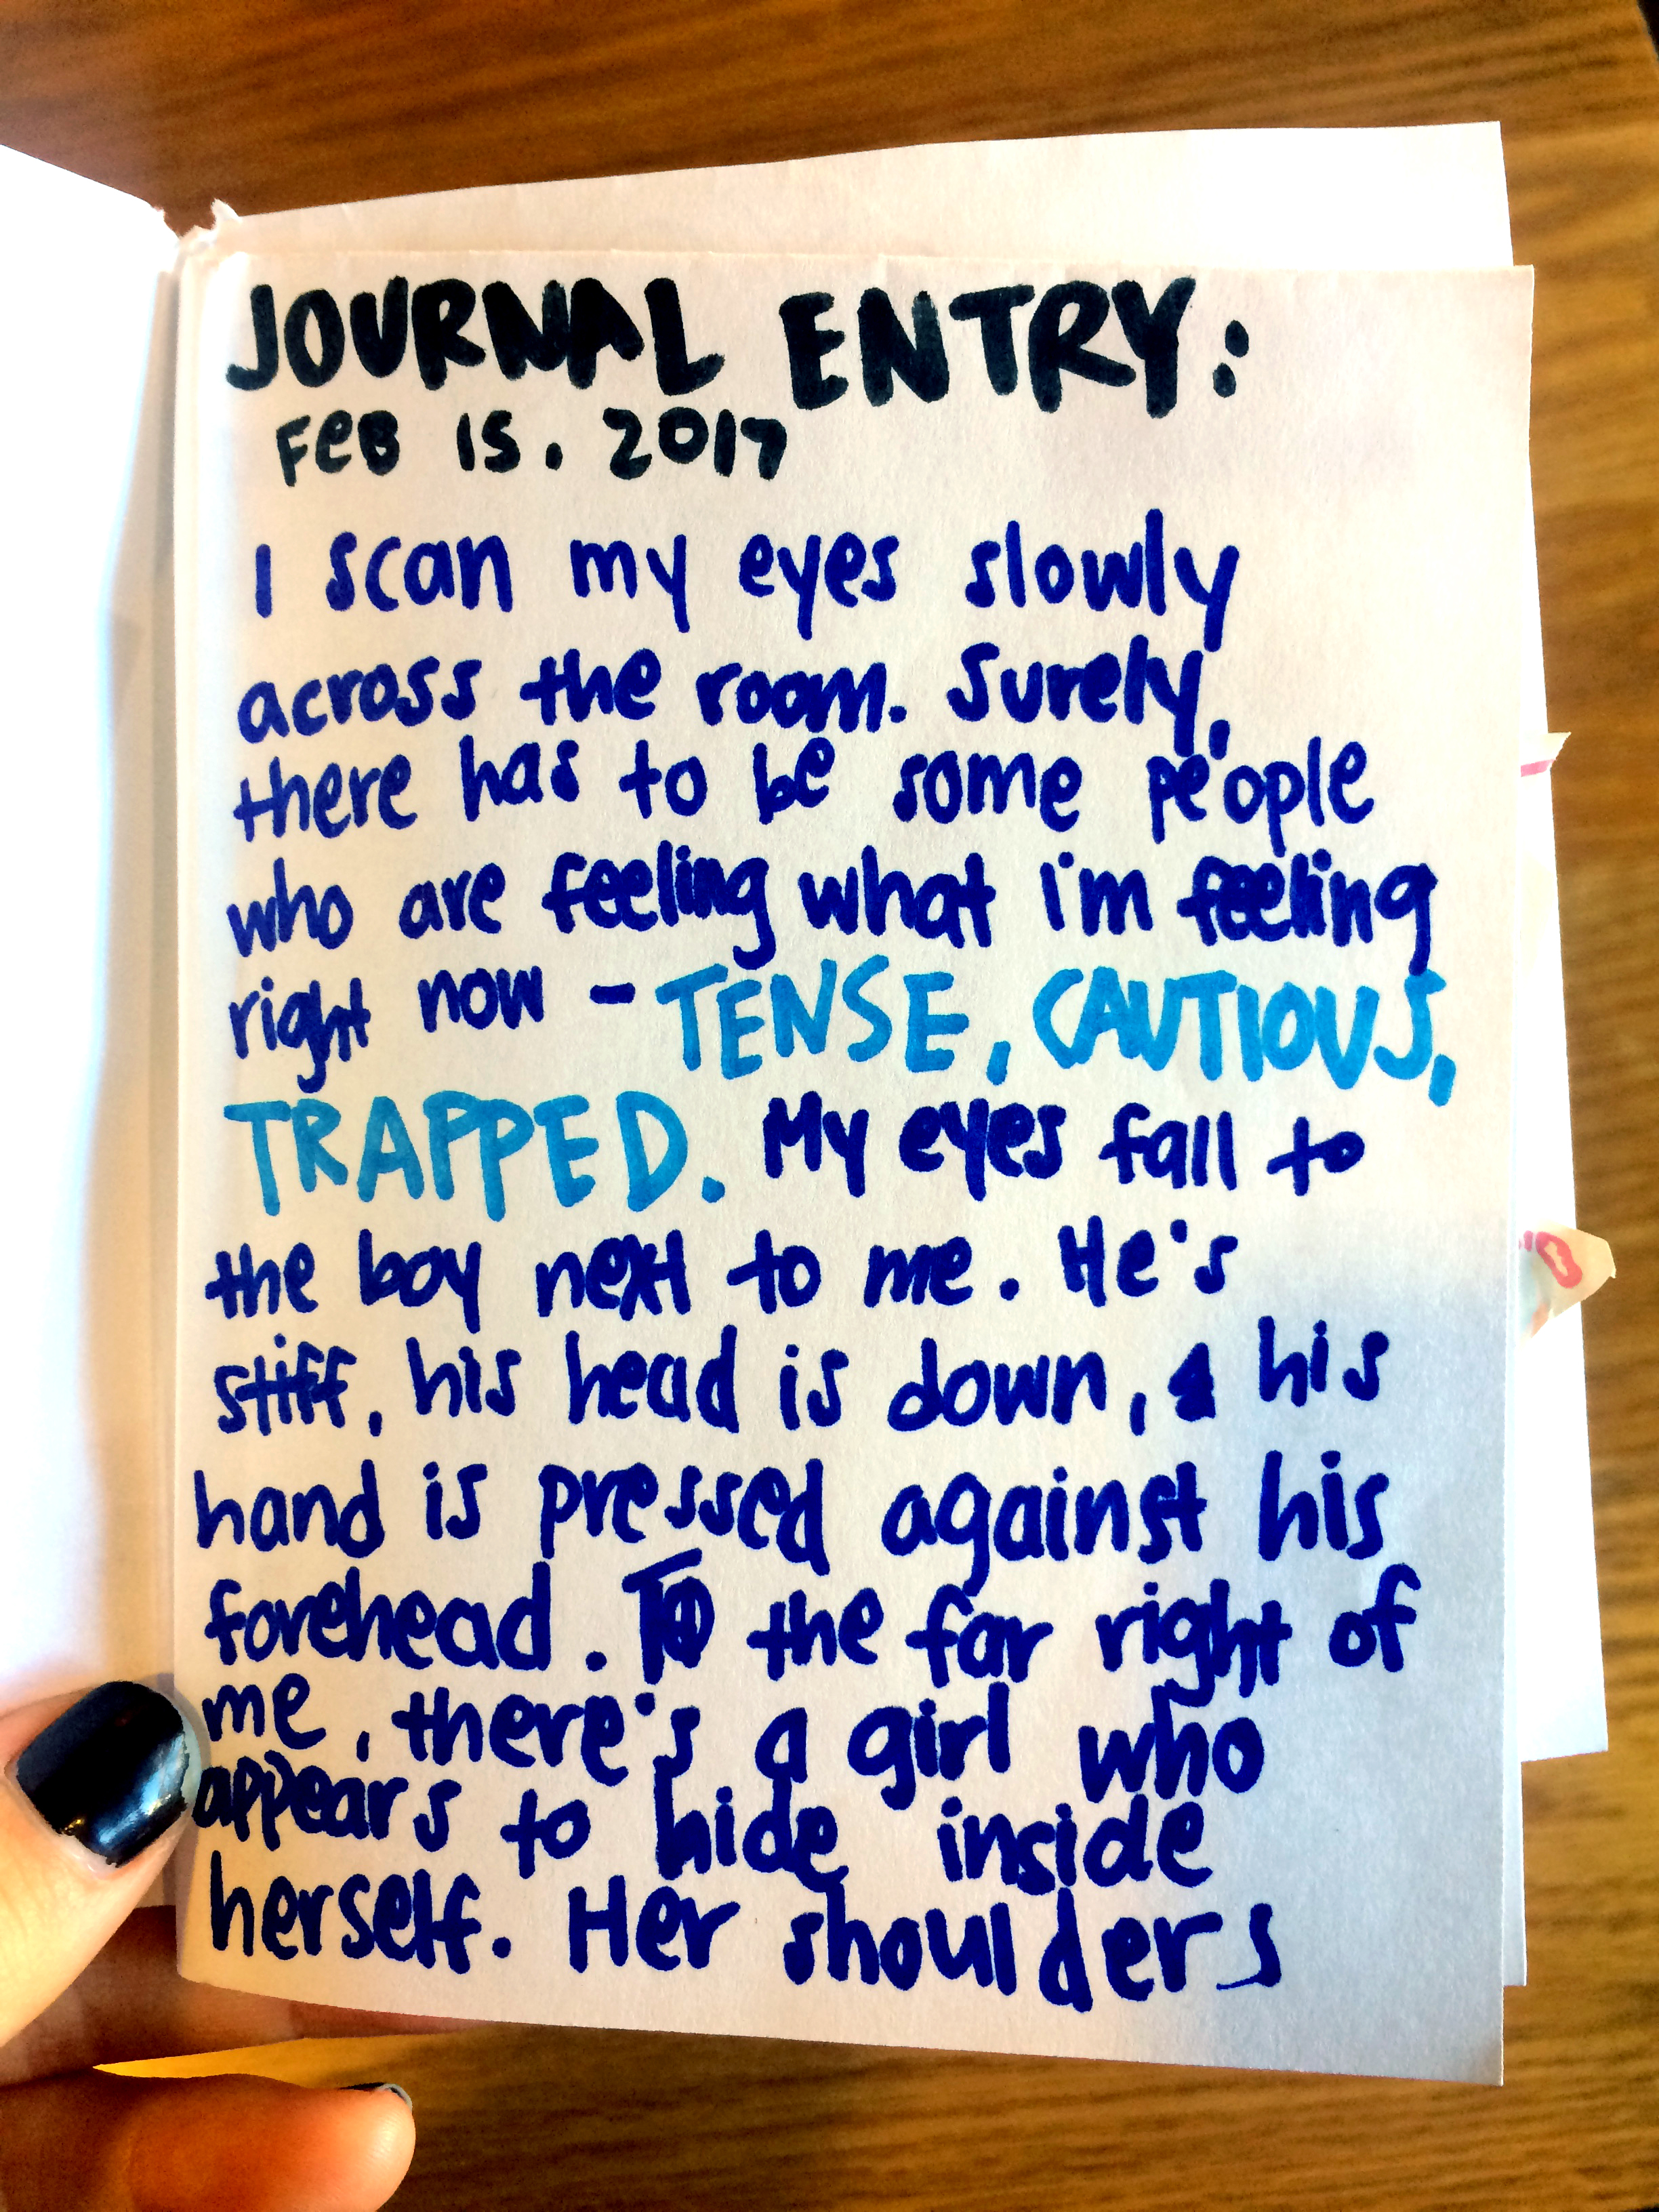 JOURNAL ENTRY:
FeB 15. 2017
I scan my eyes slowly
across the room. Surely,
there has to be some people
who are feeling what i'm feeling
right now - TENSE, CAUTIOUS,
TRAPPED. My eyes fall to
the boy next to me. He's
stiff, his head is down, & his
hand is pressed against his
forehead. To the far right of
me, there's a girl who
appears to hide inside
herself. Her shoulders